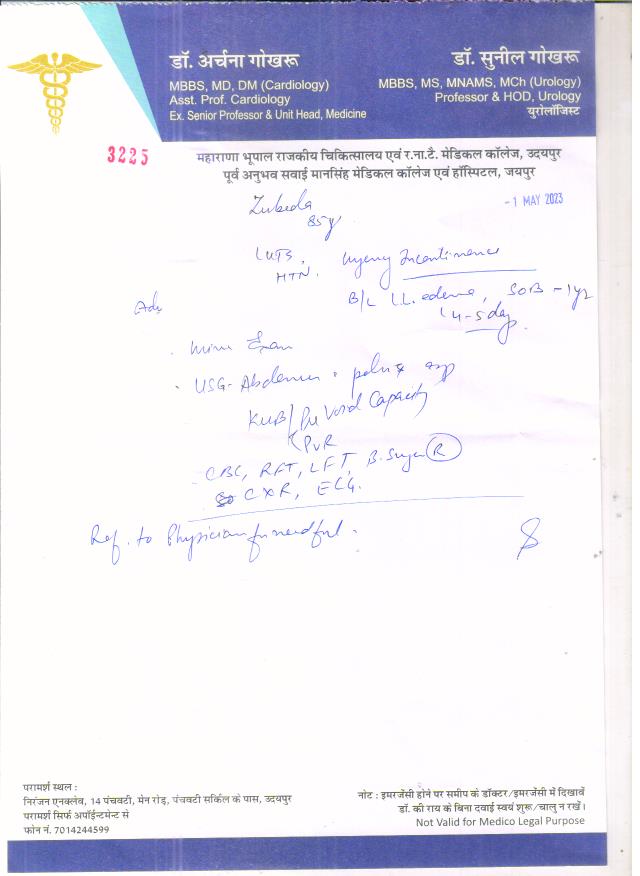 डॉ. अर्चना गोखरू
MBBS, MD, DM (Cardiology)
Asst. Prof. Cardiology
Ex. Senior Professor & Unit Head, Medicine
डॉ. सुनील गोखरू
MBBS, MS, MNAMS, MCh (Urology)
Professor & HOD, Urology
यूरोलॉजिस्ट
3225
महाराणा भूपाल राजकीय चिकित्सालय एवं र.ना.टै. मेडिकल कॉलेज, उदयपुर
पूर्व अनुभव सवाई मानसिंह मेडिकल कॉलेज एवं हॉस्पिटल, जयपुर
- 1 MAY 2023
Zubeda
85y
LUTS, Urgency Incontinence
HTN.
B/L LL. edema, SOB - 1yr
4-5 day
Adv
USG - Abdomen
KUB / Pre Void Capacity
PVR
CBC, RFT, LFT, B. Sugar (R)
CXR, ECG.
Ref. to Physician for needful.
परामर्श स्थल :
निरंजन एनक्लेव, 14 पंचवटी, मेन रोड़, पंचवटी सर्किल के पास, उदयपुर
परामर्श सिर्फ अपॉईन्टमेन्ट से
फोन नं. 7014244599
नोट : इमरजेंसी होने पर समीप के डॉक्टर/इमरजेंसी में दिखावें
डॉ. की राय के बिना दवाई स्वयं शुरू/चालु न रखें।
Not Valid for Medico Legal Purpose